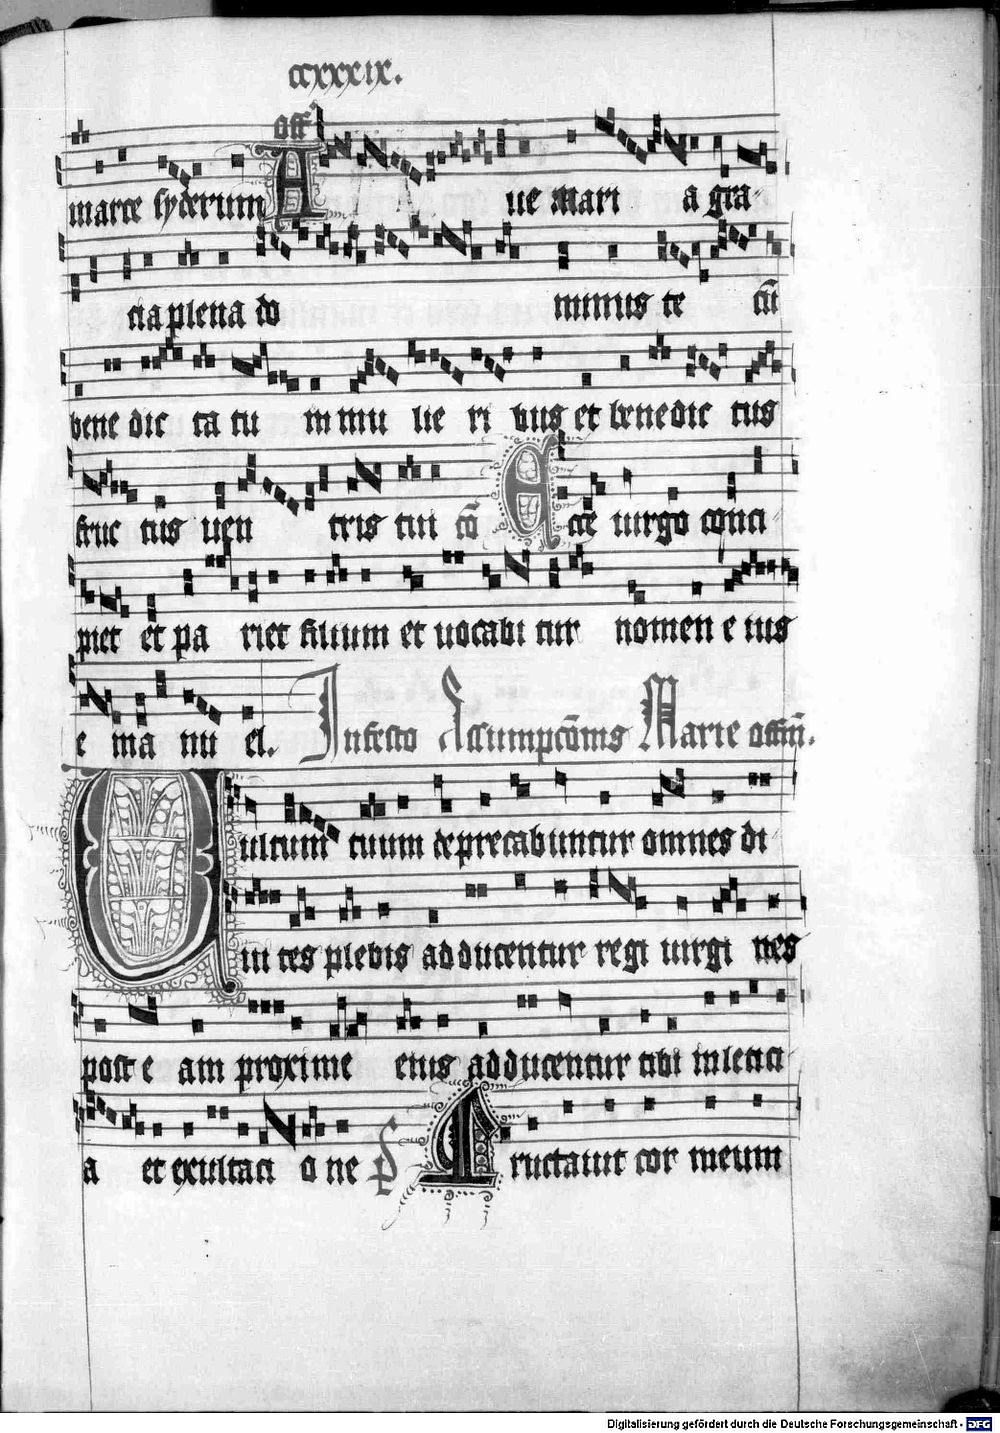 ccxxxix.
off
marie syderum Aue mari a gra-
cia plena do minus te cū
bene dic ta tu in mu lie ri bus et benedic tus
fruc tus uen tris tui cō Ecce uirgo conci-
piet et pa riet filium et uocabi tur nomen e ius
e ma nu el. In festo Assumpcōnis Marie offm̄.
Uultum tuum deprecabuntur omnes di-
ui tes plebis adducentur regi uirgi nes
post e am proxime eius adducentur tibi in leticí
a et exultaci o ne ps Eructauit cor meum
Digitalisierung gefördert durch die Deutsche Forschungsgemeinschaft - DFG